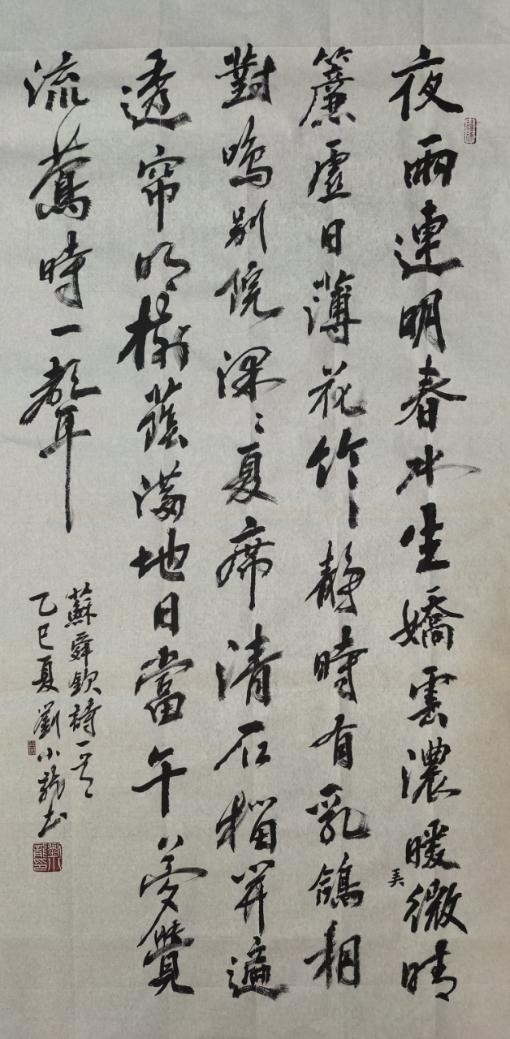 夜雨連明春水生嬌雲濃暖弄微晴
簾虛日薄花竹靜時有乳鴿相
對鳴別院深〻夏席清石榴開遍
透帘明樹蔭滿地日當午夢覺
流鶯時一聲
蘇舜欽詩
乙巳夏劉小龍書